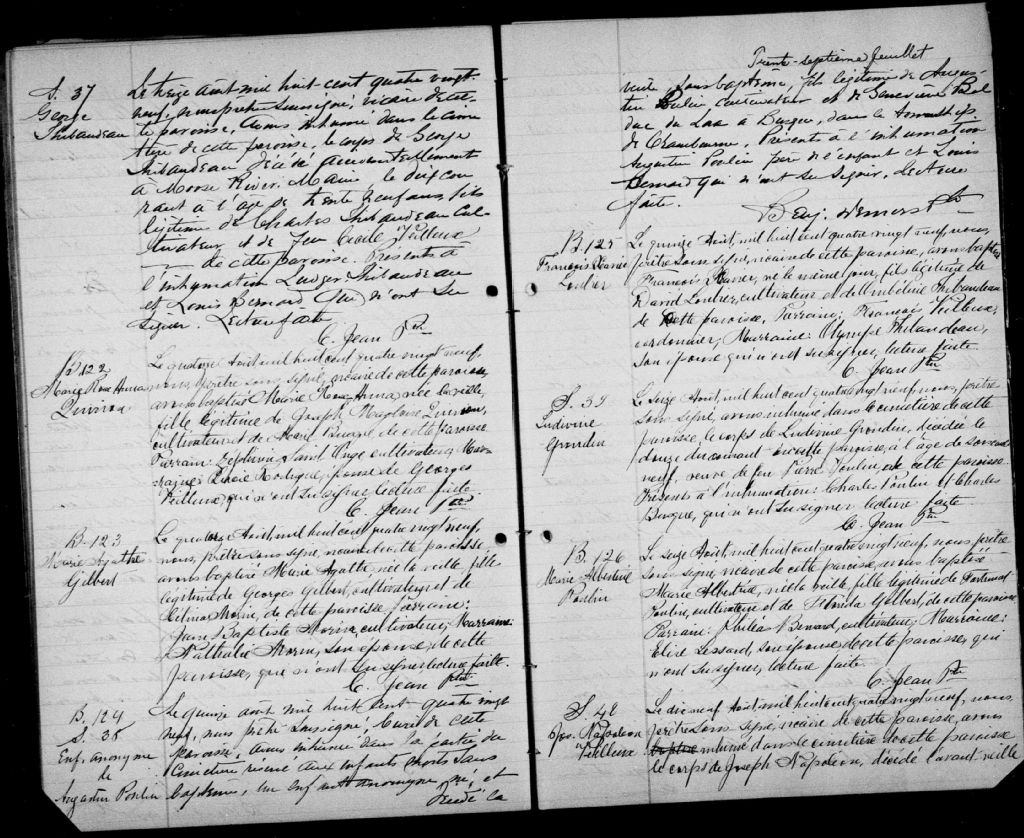 S. 37
George
Thibaudeau
Le treize août mil huit-cent quatre vingt-
neuf, nous prêtre soussigné, vicaire de cet-
te paroisse, avons inhumé dans le cime
tière de cette paroisse, le corps de George
Thibaudeau décédé accidentellement
à Moose River, Maine le dix cou
rant à l'âge de trente neuf ans, fils
légitime de Charles Thibaudeau cul-
tivateur et de feu Cécile Veilleux
de cette paroisse. Présents à
l'inhumation Ludger Thibaudeau
et Louis Bernard qui n'ont su
signer. Lecture faite
C. Jean Ptre
B. 122
Marie Rose Anna
Quirion
Le quatorze Août mil huit cent quatre vingt neuf,
nous, prêtre sous signé, vicaire de cette paroisse,
avons baptisé Marie Rose Anna, née la veille,
fille légitime de Joseph Magloire Quirion,
cultivateur et de Marie Busque, de cette paroisse
Parrain: Zéphirin Saint Onge cultivateur; Mar-
raine: Rodrigue, épouse de Georges
Veilleux, qui n'ont su signer lecture faite.
C. Jean Ptre
B. 123
Marie Agathe
Gilbert
Le quatorze Août, mil huit cent quatre vingt neuf,
nous, prêtre sous signé, vicaire de cette paroisse,
avons baptisé Marie Agathe née la veille, fille
légitime de Georges Gilbert, cultivateur, et de
Célina Morin, de cette paroisse Parrain:
Jean Baptiste Morin, cultivateur; Marraine:
Nathalie Morin, son épouse, de cette
paroisse, qui n'ont su signer lecture faite.
C. Jean Ptre
B. 124
S. 38
Enf. anonyme
de
Augustin Poulin
Le quinze août mil huit cent quatre vingt
neuf, nous prêtre soussigné, Curé de cette
Paroisse, avons inhumé dans la partie du
Cimetière réservé aux enfants morts sans
baptême, un enfant anonyme né, et
décédé la
Trente-septième feuillet
veille, sans baptême, fils légitime de Augus-
tin Poulin cultivateur et de Geneviève Bol
duc du Lac à Busque, dans le Township
de Cranbourne. Présents à l'inhumation
Augustin Poulin père de l'enfant et Louis
Bernard qui n'ont su signer. Lecture
faite.
Benj. Demers Ptre
B. 125
François Xavier
Loubier
Le quinze Août, mil huit cent quatre vingt neuf, nous,
prêtre sous signé, vicaire de cette paroisse, avons baptisé
François Xavier, né le même jour, fils légitime de
David Loubier, cultivateur et de Ombéline Thibaudeau
de cette paroisse. Parrain: François Veilleux,
cordonnier; Marraine: Olympe Thibaudeau,
son épouse qui n'ont su signer, lecture faite.
C. Jean Ptre
S. 39
Ludivine
Grondin
Le seize Août, mil huit cent quatre vingt neuf, nous, prêtre
sous signé, avons inhumé dans le cimetière de cette
paroisse, le corps de Ludivine Grondin, décédée le
douze du courant en cette paroisse, à l'âge de soixante
neuf, veuve de feu Pierre Poulin, de cette paroisse.
Présents à l'inhumation: Charles Poulin et Charles
Busque, qui n'ont su signer lecture faite.
C. Jean Ptre
B. 126
Marie Albertine
Poulin
Le seize Août, mil huit cent quatre vingt neuf, nous prêtre
sous signé, vicaire de cette paroisse, avons baptisé
Marie Albertine, née la veille, fille légitime de Fortunat
Poulin, cultivateur et de Gilbert, de cette paroisse
Parrain: Philéas Bernard, cultivateur; Marraine:
Elise Lessard, son épouse de cette paroisse, qui
n'ont su signer, lecture faite.
C. Jean Ptre
S. 40
Jos. Napoléon
Veilleux
Le dix neuf Août, mil huit cent quatre vingt neuf, nous,
prêtre sous signé, vicaire de cette paroisse, avons
baptisé inhumé dans le cimetière de cette paroisse
le corps de Joseph Napoléon, décédé l'avant veille